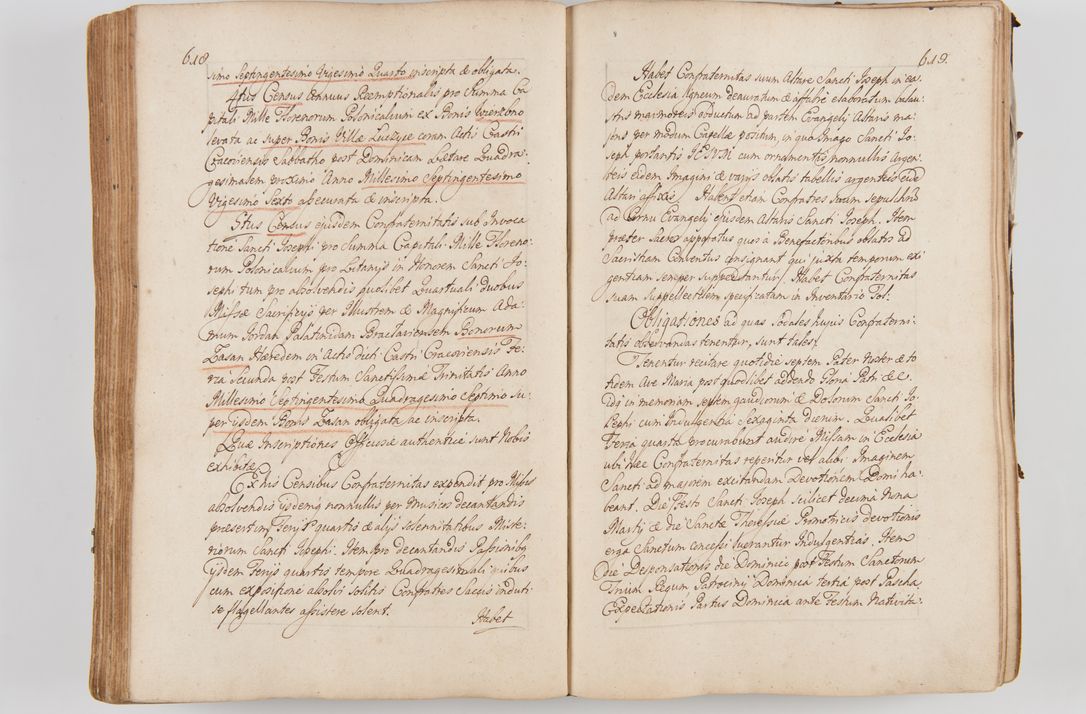 618
simo Septingentesimo Vigesimo Quarto inscripta & obligata.
4tus Census Annuus Reemptionalis pro Summa Ca
pitali Mille Florenorum Polonicalium ex Bonis Wierzbno
levata ac super Bonis Villæ Luczyce coram Actis Castri
Cracoviensis Sabbatho post Dominicam Lætare Quadra-
gesimalem proximo Anno Millesimo Septingentesimo
Vigesimo Sexto assecurata & inscripta.
5tus Census ejusdem Confraternitatis sub Invoca
tione Sancti Joseph pro Summa Capitali Mille Floreno-
rum Polonicalium pro Litanijs in Honorem Sancti Jo-
sephi tum pro absolvendis quolibet Quartuali duobus
Missæ Sacrificijs per Illustrem & Magnificum Ada-
mum Jordan Palatinidam Braclaviensem Bonorum
Zasan Hæredem in Actis dicti Castri Cracoviensis Fe-
ria Secunda post Festum Sanctissimæ Trinitatis Anno
Millesimo Septingentesimo Quadragesimo Septimo su-
per iisdem Bonis Zasan obligata ac inscripta.
Quæ Inscriptiones Officiosæ authenticæ sunt Nobis
exhibitæ
Ex his Censibus Confraternitas expendit pro Missis
absolvendis ijsdemq nonnullis per Musicos decantandis
præsertim Ferijs quartis & alijs solennitatibus Miste-
riorum Sancti Josephi. Item pro decantandis Passionibus
ijsdem Ferijs quartis tempore Quadragesimali quibus
cum expositione absolvi solitis Confratres Saccis induti
se flagellantes assistere solent.
Habet
619.
Habet Confraternitas suum Altare Sancti Joseph in ea-
dem Ecclesia ligneum deauratum & affabre elaboratum balau-
stris marmoreis obductum ad partem Evangeli Altaris ma-
joris per modum Capellæ positum, in quo Imago Sancti Jo-
seph portantis JESUM cum ornamentis nonnullis argen-
teis eidem Imagini & varijs oblatis tabellis argenteis eid
Altari affixis. Habent etiam Confratres suum sepulchrum
ad Cornu Evangeli ejusdem Altaris Sancti Joseph. Item
præter Sacros apparatus quos à Benefactoribus oblatos ad
Sacristiam Conventus consignant qui juxta temporum exi
gentiam semper suppeditantur. Habet Confraternitas
suam suppellectilem specificatam in Inventario Fol:
Obligationes ad quas Sodales hujus Confraterni-
tatis observandas tenentur, sunt tales.
Tenentur recitare quotidie septem Pater Noster & to
tidem Ave Maria post quodlibet addendo Gloria Patri &c.
idq in memoriam septem gaudiorum & Dolorum Sancti Jo-
sephi cum Indulgentia Sexaginta dierum. Qualibet
Feria quarta procurabunt audire Missam in Ecclesia
ubi hæc Confraternitas reperitur vel alibi Imaginem
Sancti ad majorem excitandam Devotionem Domi ha-
beant. Die Festo Sancti Joseph scilicet decima Nona
Martij & die Sanctæ Theresiæ Promotricis devotionis
erga Sanctum concessi lucrantur Indulgentias. Item
die Desponsationis die Dominico post Festum Sanctorum
Trium Regum Patrocinij Dominica tertia post Pascha
Expectationis Partus Dominica ante Festum Nativita-